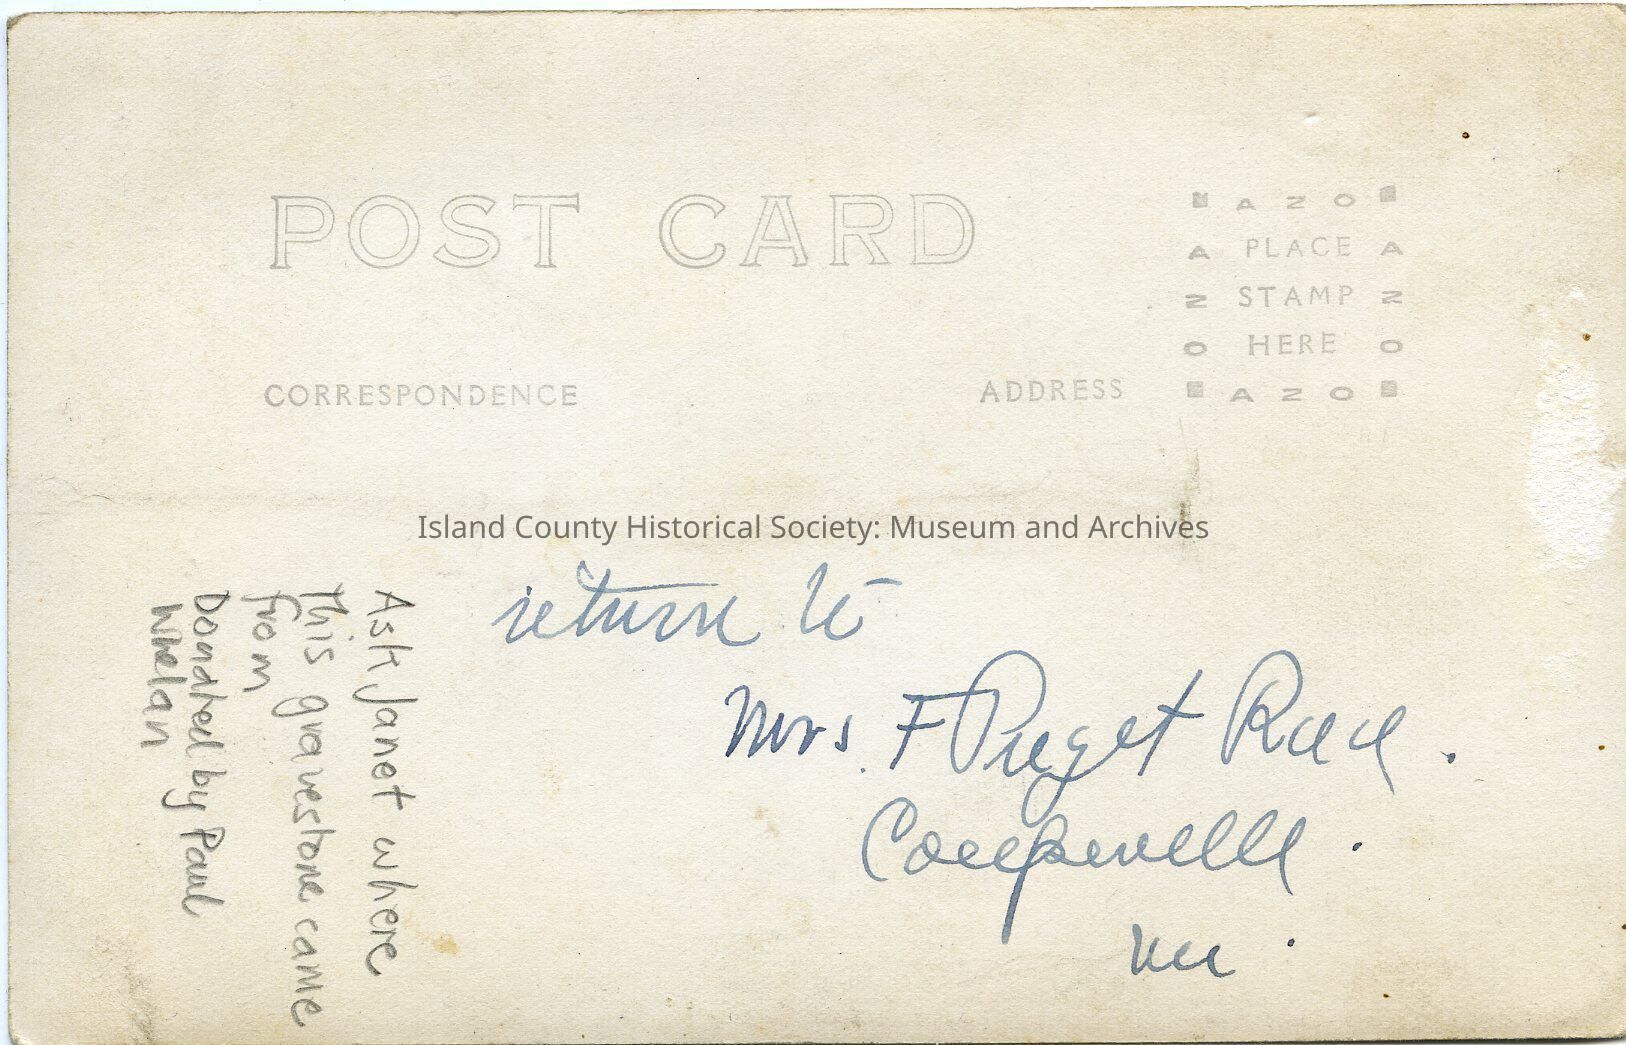 POST CARD
AZO
A PLACE A
Z STAMP Z
O HERE O
AZO
CORRESPONDENCE
ADDRESS
Island County Historical Society: Museum and Archives
return to
Mrs F Puget Race.
Coupeville.
Ask Janet where
this gravestone came
from
Donated by Paul
Whelan